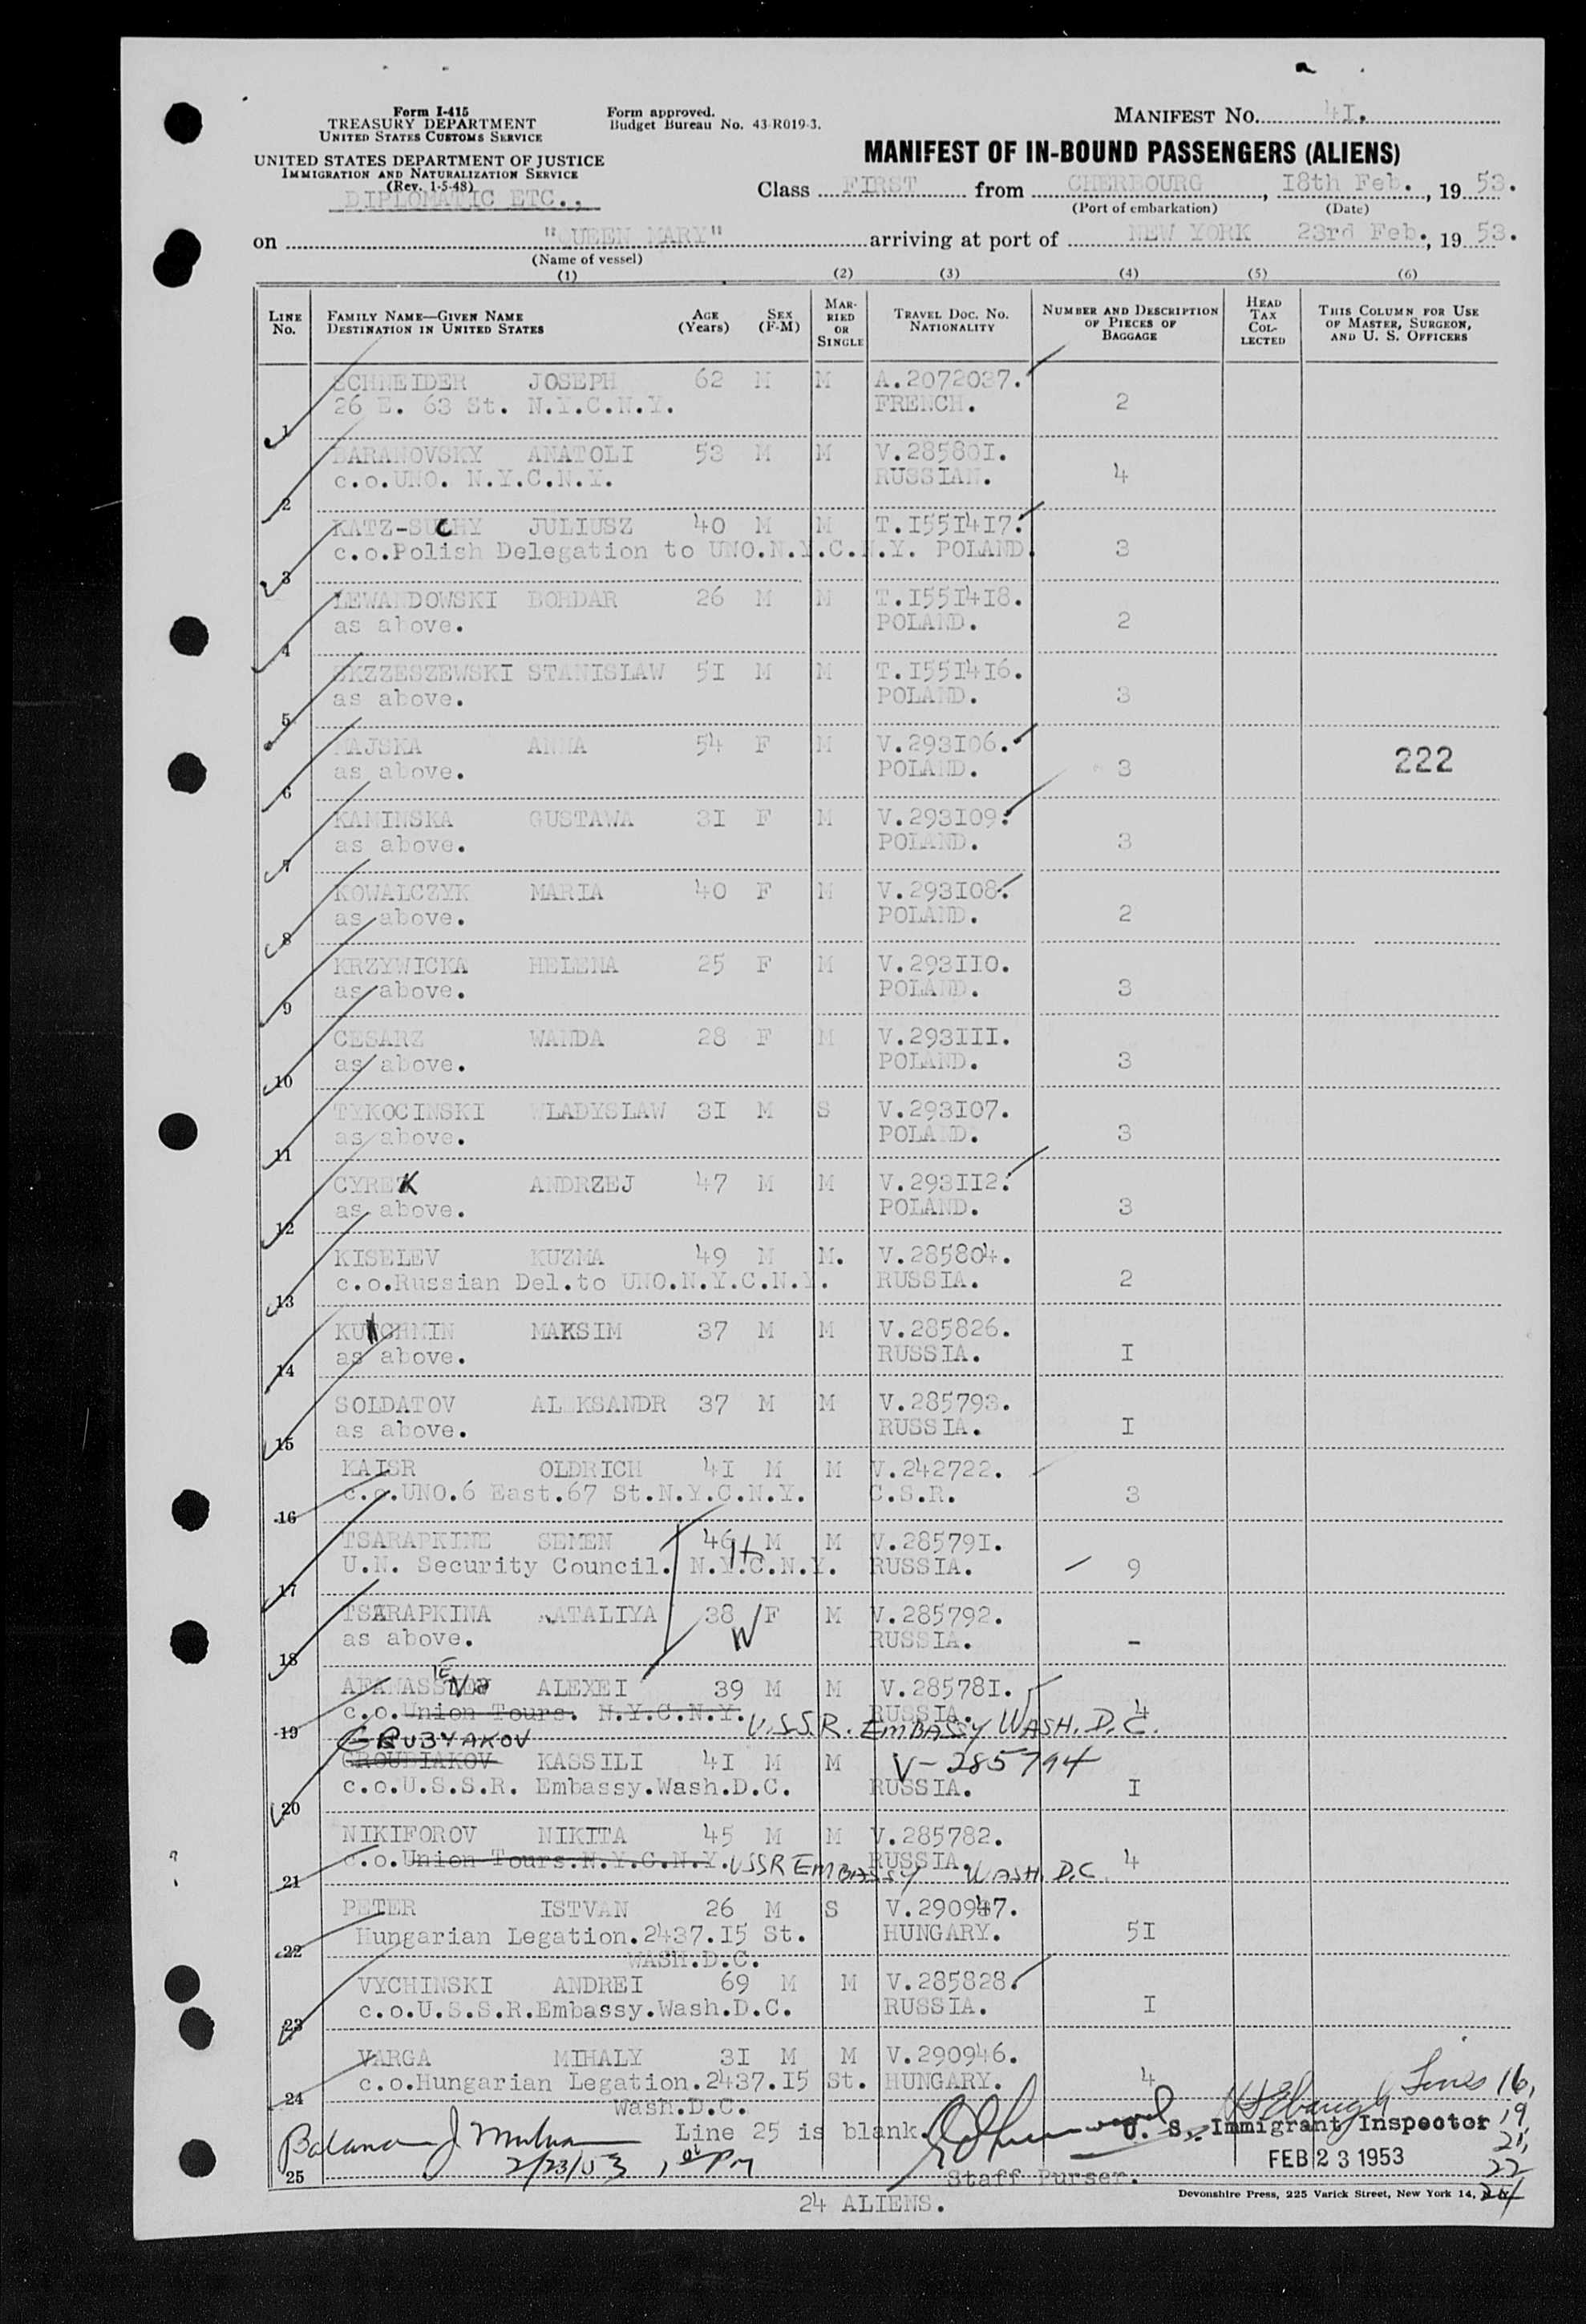 Form I-415
TREASURY DEPARTMENT
UNITED STATES CUSTOMS SERVICE
UNITED STATES DEPARTMENT OF JUSTICE
IMMIGRATION AND NATURALIZATION SERVICE
(Rev. 1-5-48)
DIPLOMATIC ETC.,
Form approved.
Budget Bureau No. 43-R019-3.
MANIFEST No. 41.
MANIFEST OF IN-BOUND PASSENGERS (ALIENS)
Class FIRST from CHERBOURG, 18th Feb., 1953.
(Port of embarkation) (Date)
on "QUEEN MARY" arriving at port of NEW YORK 23rd Feb., 1953.
(Name of vessel)
(1) (2) (3) (4) (5) (6)
LINE No. FAMILY NAME—GIVEN NAME DESTINATION IN UNITED STATES AGE (Years) SEX (F-M) MARRIED OR SINGLE TRAVEL DOC. NO. NATIONALITY NUMBER AND DESCRIPTION OF PIECES OF BAGGAGE HEAD TAX COLLECTED THIS COLUMN FOR USE OF MASTER, SURGEON, AND U. S. OFFICERS
SCHNEIDER JOSEPH 62 M M A.2072037.
1 26 E. 63 St. N.Y.C.N.Y. FRENCH. 2
BARANOVSKY ANATOLI 53 M M V.285801.
2 c.o.UNO. N.Y.C.N.Y. RUSSIAN. 4
KATZ-SUCHY JULIUSZ 40 M M T.1551417.
3 c.o.Polish Delegation to UNO.N.Y.C.N.Y. POLAND. 3
LEWANDOWSKI BOHDAR 26 M M T.1551418.
4 as above. POLAND. 2
SKZZESZEWSKI STANISLAW 51 M M T.1551416.
5 as above. POLAND. 3
MAJSKA ANNA 54 F M V.293106.
6 as above. POLAND. 3 222
KAMINSKA GUSTAWA 31 F M V.293109.
7 as above. POLAND. 3
KOWALCZYK MARIA 40 F M V.293108.
8 as above. POLAND. 2
KRZYWICKA HELENA 25 F M V.293110.
9 as above. POLAND. 3
CESARZ WANDA 28 F M V.293111.
10 as above. POLAND. 3
TYKOCINSKI WLADYSLAW 31 M S V.293107.
11 as above. POLAND. 3
CYREK ANDRZEJ 47 M M V.293112.
12 as above. POLAND. 3
KISELEV KUZMA 49 M M. V.285804.
13 c.o.Russian Del.to UNO.N.Y.C.N.Y. RUSSIA. 2
MAKSIM 37 M M V.285826.
14 as above. RUSSIA. 1
SOLDATOV ALEKSANDR 37 M M V.285793.
15 as above. RUSSIA. 1
KAISR OLDRICH 41 M M V.242722.
16 c.o.UNO.6 East.67 St.N.Y.C.N.Y. C.S.R. 3
TSARAPKINE SEMEN 46 M M V.285791.
H
17 U.N. Security Council. N.Y.C.N.Y. RUSSIA. 9
TSARAPKINA NATALIYA 38 F M V.285792.
W
18 as above. RUSSIA. -
ALEXEI 39 M M V.285781.
19 c.o.Union Tours. N.Y.C.N.Y. U.S.S.R. EMBASSY WASH. D.C. RUSSIA. 4
GRUBYAKOV
GROUBIAKOV KASSILI 41 M M V-285794
20 c.o.U.S.S.R. Embassy.Wash.D.C. RUSSIA. 1
NIKIFOROV NIKITA 45 M M V.285782.
21 c.o.Union Tours.N.Y.C.N.Y. USSR EMBASSY WASH. D.C. RUSSIA. 4
PETER ISTVAN 26 M S V.290947.
22 Hungarian Legation.2437.15 St. HUNGARY. 51
WASH.D.C.
VYCHINSKI ANDREI 69 M M V.285828.
23 c.o.U.S.S.R.Embassy.Wash.D.C. RUSSIA. 1
VARGA MIHALY 31 M M V.290946.
24 c.o.Hungarian Legation.2437.15 St. HUNGARY. 4
Wash.D.C.
Lines 16,
19,
21,
22
24
Line 25 is blank.
U. S. Immigrant Inspector
Balance
2/23/53
FEB 23 1953
25
Staff Purser.
24 ALIENS.
Devonshire Press, 225 Varick Street, New York 14,